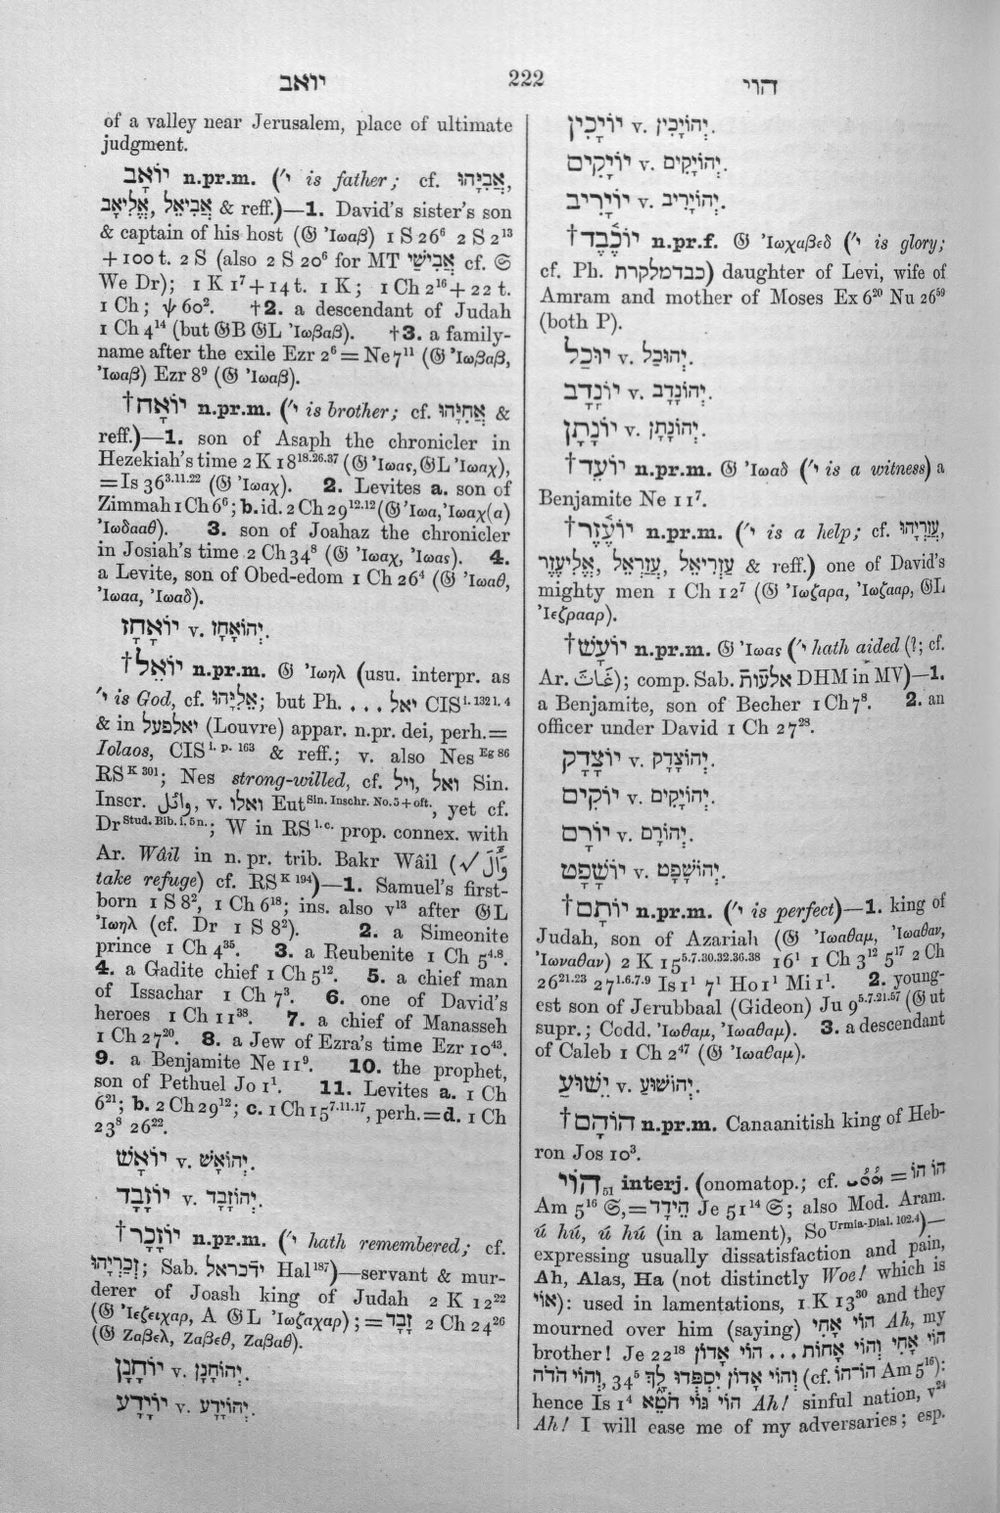 יואב
222
הוי
of a valley near Jerusalem, place of ultimate
judgment.
יוֹאָב n.pr.m. (׳י is father; cf. אֲבִיָּהוּ,
אֲבִיאֵל, אֱלִיאָב & reff.)—1. David's sister's son
& captain of his host (𝔊 Ἰωαβ) 1 S 26⁶ 2 S 2¹³
+100 t. 2 S (also 2 S 20⁶ for MT אֲבִישַׁי cf. 𝔖
We Dr); 1 K 1⁷+14 t. 1 K; 1 Ch 2¹⁶+22 t.
1 Ch; ψ 60². †2. a descendant of Judah
1 Ch 4¹⁴ (but 𝔊B 𝔊L Ἰωβαβ). †3. a family-
name after the exile Ezr 2⁶=Ne 7¹¹ (𝔊 Ἰωβαβ,
Ἰωαβ) Ezr 8⁹ (𝔊 Ἰωαβ).
†יוֹאָח n.pr.m. (׳י is brother; cf. אֲחִיָּהוּ &
reff.)—1. son of Asaph the chronicler in
Hezekiah's time 2 K 18¹⁸·²⁶·³⁷ (𝔊 Ἰωας, 𝔊L Ἰωαχ),
=Is 36³·¹¹·²² (𝔊 Ἰωαχ). 2. Levites a. son of
Zimmah 1 Ch 6⁶; b. id. 2 Ch 29¹²·¹² (𝔊 Ἰωα, Ἰωαχ(α)
Ἰωδααθ). 3. son of Joahaz the chronicler
in Josiah's time 2 Ch 34⁸ (𝔊 Ἰωαχ, Ἰωας). 4.
a Levite, son of Obed-edom 1 Ch 26⁴ (𝔊 Ἰωαθ,
Ἰωαα, Ἰωαδ).
יוֹאָחָז v. יְהוֹאָחָז.
†יוֹאֵל n.pr.m. 𝔊 Ἰωηλ (usu. interpr. as
׳י is God, cf. אֱלִיָּהוּ; but Ph. ... יאל CIS¹·¹³²¹·⁴
& in יאלפעל (Louvre) appar. n.pr. dei, perh.=
Iolaos, CIS¹·ᵖ·¹⁶³ & reff.; v. also Nes Eg 86
RS K 301; Nes strong-willed, cf. ויל, ואל Sin.
Inscr. وائل, v. ואלו Eut Sin. Inschr. No. 5+oft., yet cf.
Dr Stud. Bib. i. 5 n.; W in RS l.c. prop. connex. with
Ar. Wâil in n. pr. trib. Bakr Wâil (√ وَأَلَ
take refuge) cf. RS K 194)—1. Samuel's first-
born 1 S 8², 1 Ch 6¹⁸; ins. also v¹³ after 𝔊L
Ἰωηλ (cf. Dr 1 S 8²). 2. a Simeonite
prince 1 Ch 4³⁵. 3. a Reubenite 1 Ch 5⁴·⁸.
4. a Gadite chief 1 Ch 5¹². 5. a chief man
of Issachar 1 Ch 7³. 6. one of David's
heroes 1 Ch 11³⁸. 7. a chief of Manasseh
1 Ch 27²⁰. 8. a Jew of Ezra's time Ezr 10⁴³.
9. a Benjamite Ne 11⁹. 10. the prophet,
son of Pethuel Jo 1¹. 11. Levites a. 1 Ch
6²¹; b. 2 Ch 29¹²; c. 1 Ch 15⁷·¹¹·¹⁷, perh.=d. 1 Ch
23⁸ 26²².
יוֹאָשׁ v. יְהוֹאָשׁ.
יוֹזָבָד v. יְהוֹזָבָד.
†יוֹזָכָר n.pr.m. (׳י hath remembered; cf.
זְכַרְיָהוּ; Sab. ידֿכראל Hal¹⁸⁷)—servant & mur-
derer of Joash king of Judah 2 K 12²²
(𝔊 Ἰεζειχαρ, A 𝔊L Ἰωζαχαρ); =זָבָד 2 Ch 24²⁶
(𝔊 Ζαβελ, Ζαβεθ, Ζαβαθ).
יוֹחָנָן v. יְהוֹחָנָן.
יוֹיָדָע v. יְהוֹיָדָע.
יוֹיָכִין v. יְהוֹיָכִין.
יוֹיָקִים v. יְהוֹיָקִים.
יוֹיָרִיב v. יְהוֹיָרִיב.
†יוֹכֶבֶד n.pr.f. 𝔊 Ἰωχαβεδ (׳י is glory;
cf. Ph. כבדמלקרת) daughter of Levi, wife of
Amram and mother of Moses Ex 6²⁰ Nu 26⁵⁹
(both P).
יוּכַל v. יְהוּכַל.
יוֹנָדָב v. יְהוֹנָדָב.
יוֹנָתָן v. יְהוֹנָתָן.
†יוֹעֵד n.pr.m. 𝔊 Ἰωαδ (׳י is a witness) a
Benjamite Ne 11⁷.
†יוֹעֶזֶר n.pr.m. (׳י is a help; cf. עֲזַרְיָהוּ,
עַזְרִיאֵל, עֲזַרְאֵל, אֱלִיעֶזֶר & reff.) one of David's
mighty men 1 Ch 12⁷ (𝔊 Ἰωζαρα, Ἰωζααρ, 𝔊L
Ἰεζρααρ).
†יוֹעָשׁ n.pr.m. 𝔊 Ἰωας (׳י hath aided (?; cf.
Ar. غَاثَ); comp. Sab. DHM in MV)—1.
a Benjamite, son of Becher 1 Ch 7⁸. 2. an
officer under David 1 Ch 27²⁸.
יוֹצָדָק v. יְהוֹצָדָק.
יוֹקִים v. יְהוֹיָקִים.
יוֹרָם v. יְהוֹרָם.
יוֹשָׁפָט v. יְהוֹשָׁפָט.
†יוֹתָם n.pr.m. (׳י is perfect)—1. king of
Judah, son of Azariah (𝔊 Ἰωαθαμ, Ἰωαθαν,
Ἰωναθαν) 2 K 15⁵·⁷·³⁰·³²·³⁶·³⁸ 16¹ 1 Ch 3¹² 5¹⁷ 2 Ch
26²¹·²³ 27¹·⁶·⁷·⁹ Is 1¹ 7¹ Ho 1¹ Mi 1¹. 2. young-
est son of Jerubbaal (Gideon) Ju 9⁵·⁷·²¹·⁵⁷ (𝔊 ut
supr.; Codd. Ἰωθαμ, Ἰωαθαμ). 3. a descendant
of Caleb 1 Ch 2⁴⁷ (𝔊 Ἰωαθαμ).
יֵשׁוּעַ v. יְהוֹשׁוּעַ.
†הוֹהָם n.pr.m. Canaanitish king of Heb-
ron Jos 10³.
הוֹי₅₁ interj. (onomatop.; cf. = הוֹ הוֹ
Am 5¹⁶ 𝔖, =הֵידָד Je 51¹⁴ 𝔖; also Mod. Aram.
ú hú, ú hú (in a lament), So Urmia-Dial. 102.4)—
expressing usually dissatisfaction and pain,
Ah, Alas, Ha (not distinctly Woe! which is
אוֹי): used in lamentations, 1 K 13³⁰ and they
mourned over him (saying) הוֹי אָחִי Ah, my
brother! Je 22¹⁸ הוֹי אָחִי וְהוֹי אָחוֹת ... הוֹי אָדוֹן
וְהוֹי הֹדֹה, 34⁵ וְהוֹי אָדוֹן יִסְפְּדוּ לָךְ (cf. הוֹ־הוֹ Am 5¹⁶):
hence Is 1⁴ הוֹי גּוֹי חֹטֵא Ah! sinful nation, v²⁴
Ah! I will ease me of my adversaries; esp.